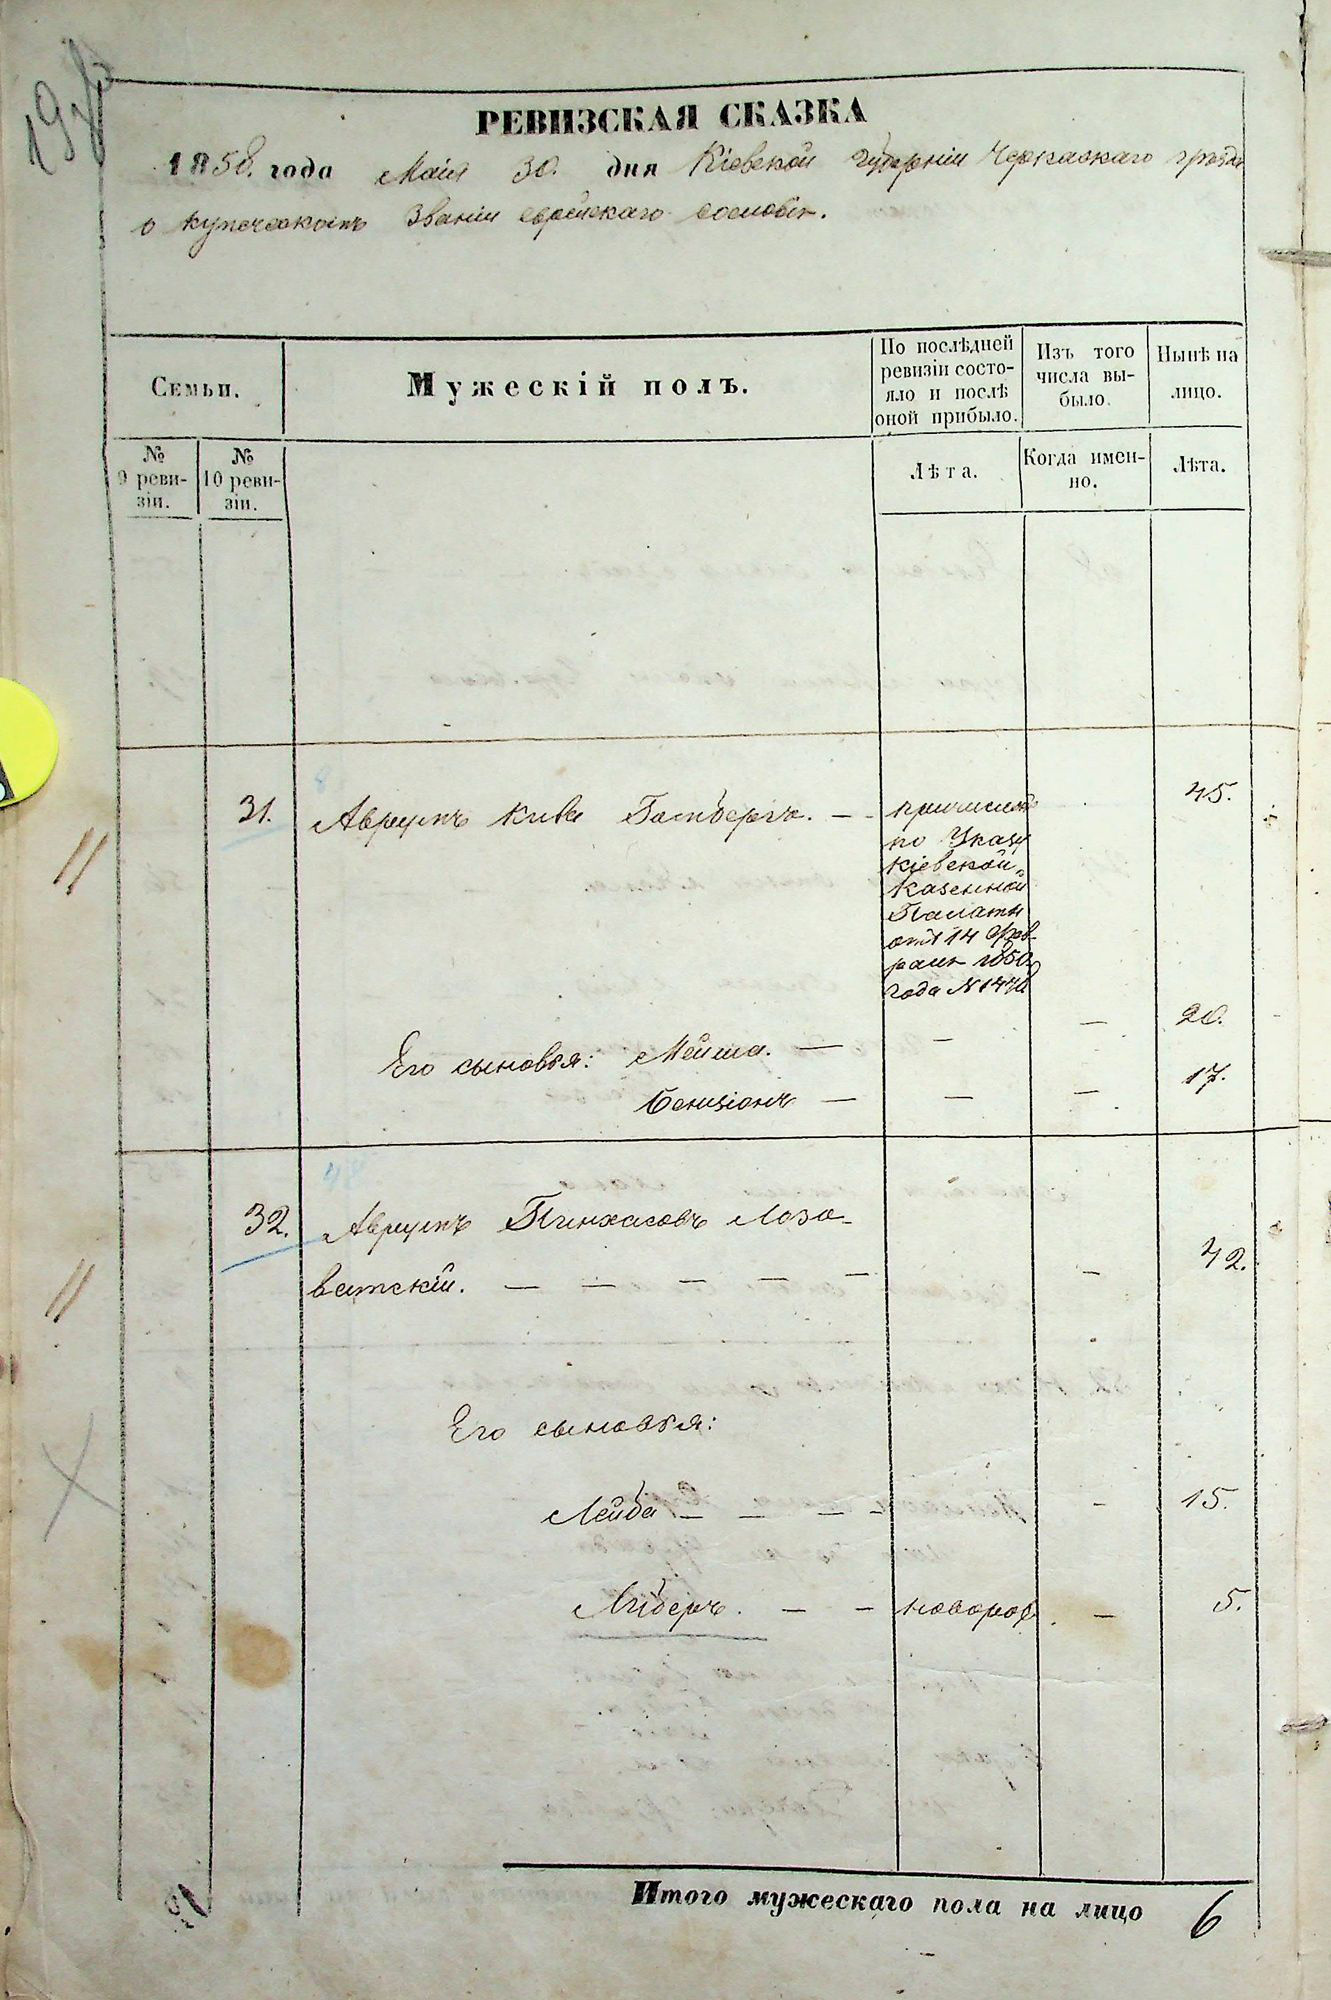 РЕВИЗСКАЯ СКАЗКА
1858. года Мая 30. дня Кіевской Губерніи Черкаскаго
о купеческомъ Званіи еврейскаго сословія.
Семьи.
Мужескій полъ.
По послѣдней ревизіи состояло и послѣ оной прибыло.
Изъ того числа выбыло.
Нынѣ на лицо.
№ 9 ревизіи.
№ 10 ревизіи.
Лѣта.
Когда именно.
Лѣта.
31. Аврумъ Кива — 45.
причислен
по Указу
Кіевской
Казенной
Палаты
отъ 14 Фев-
раля 1850
года N
Его сыновья: Мейша. — — — 20.
Бенціонъ — — — 17.
32. Аврумъ Пинхасовъ Лозо-
ватскій. — — — — — — 42.
Его сыновья:
Лейба — — — — — 15.
Лейберъ. — — новорож. — 5.
Итого мужескаго пола на лицо 6